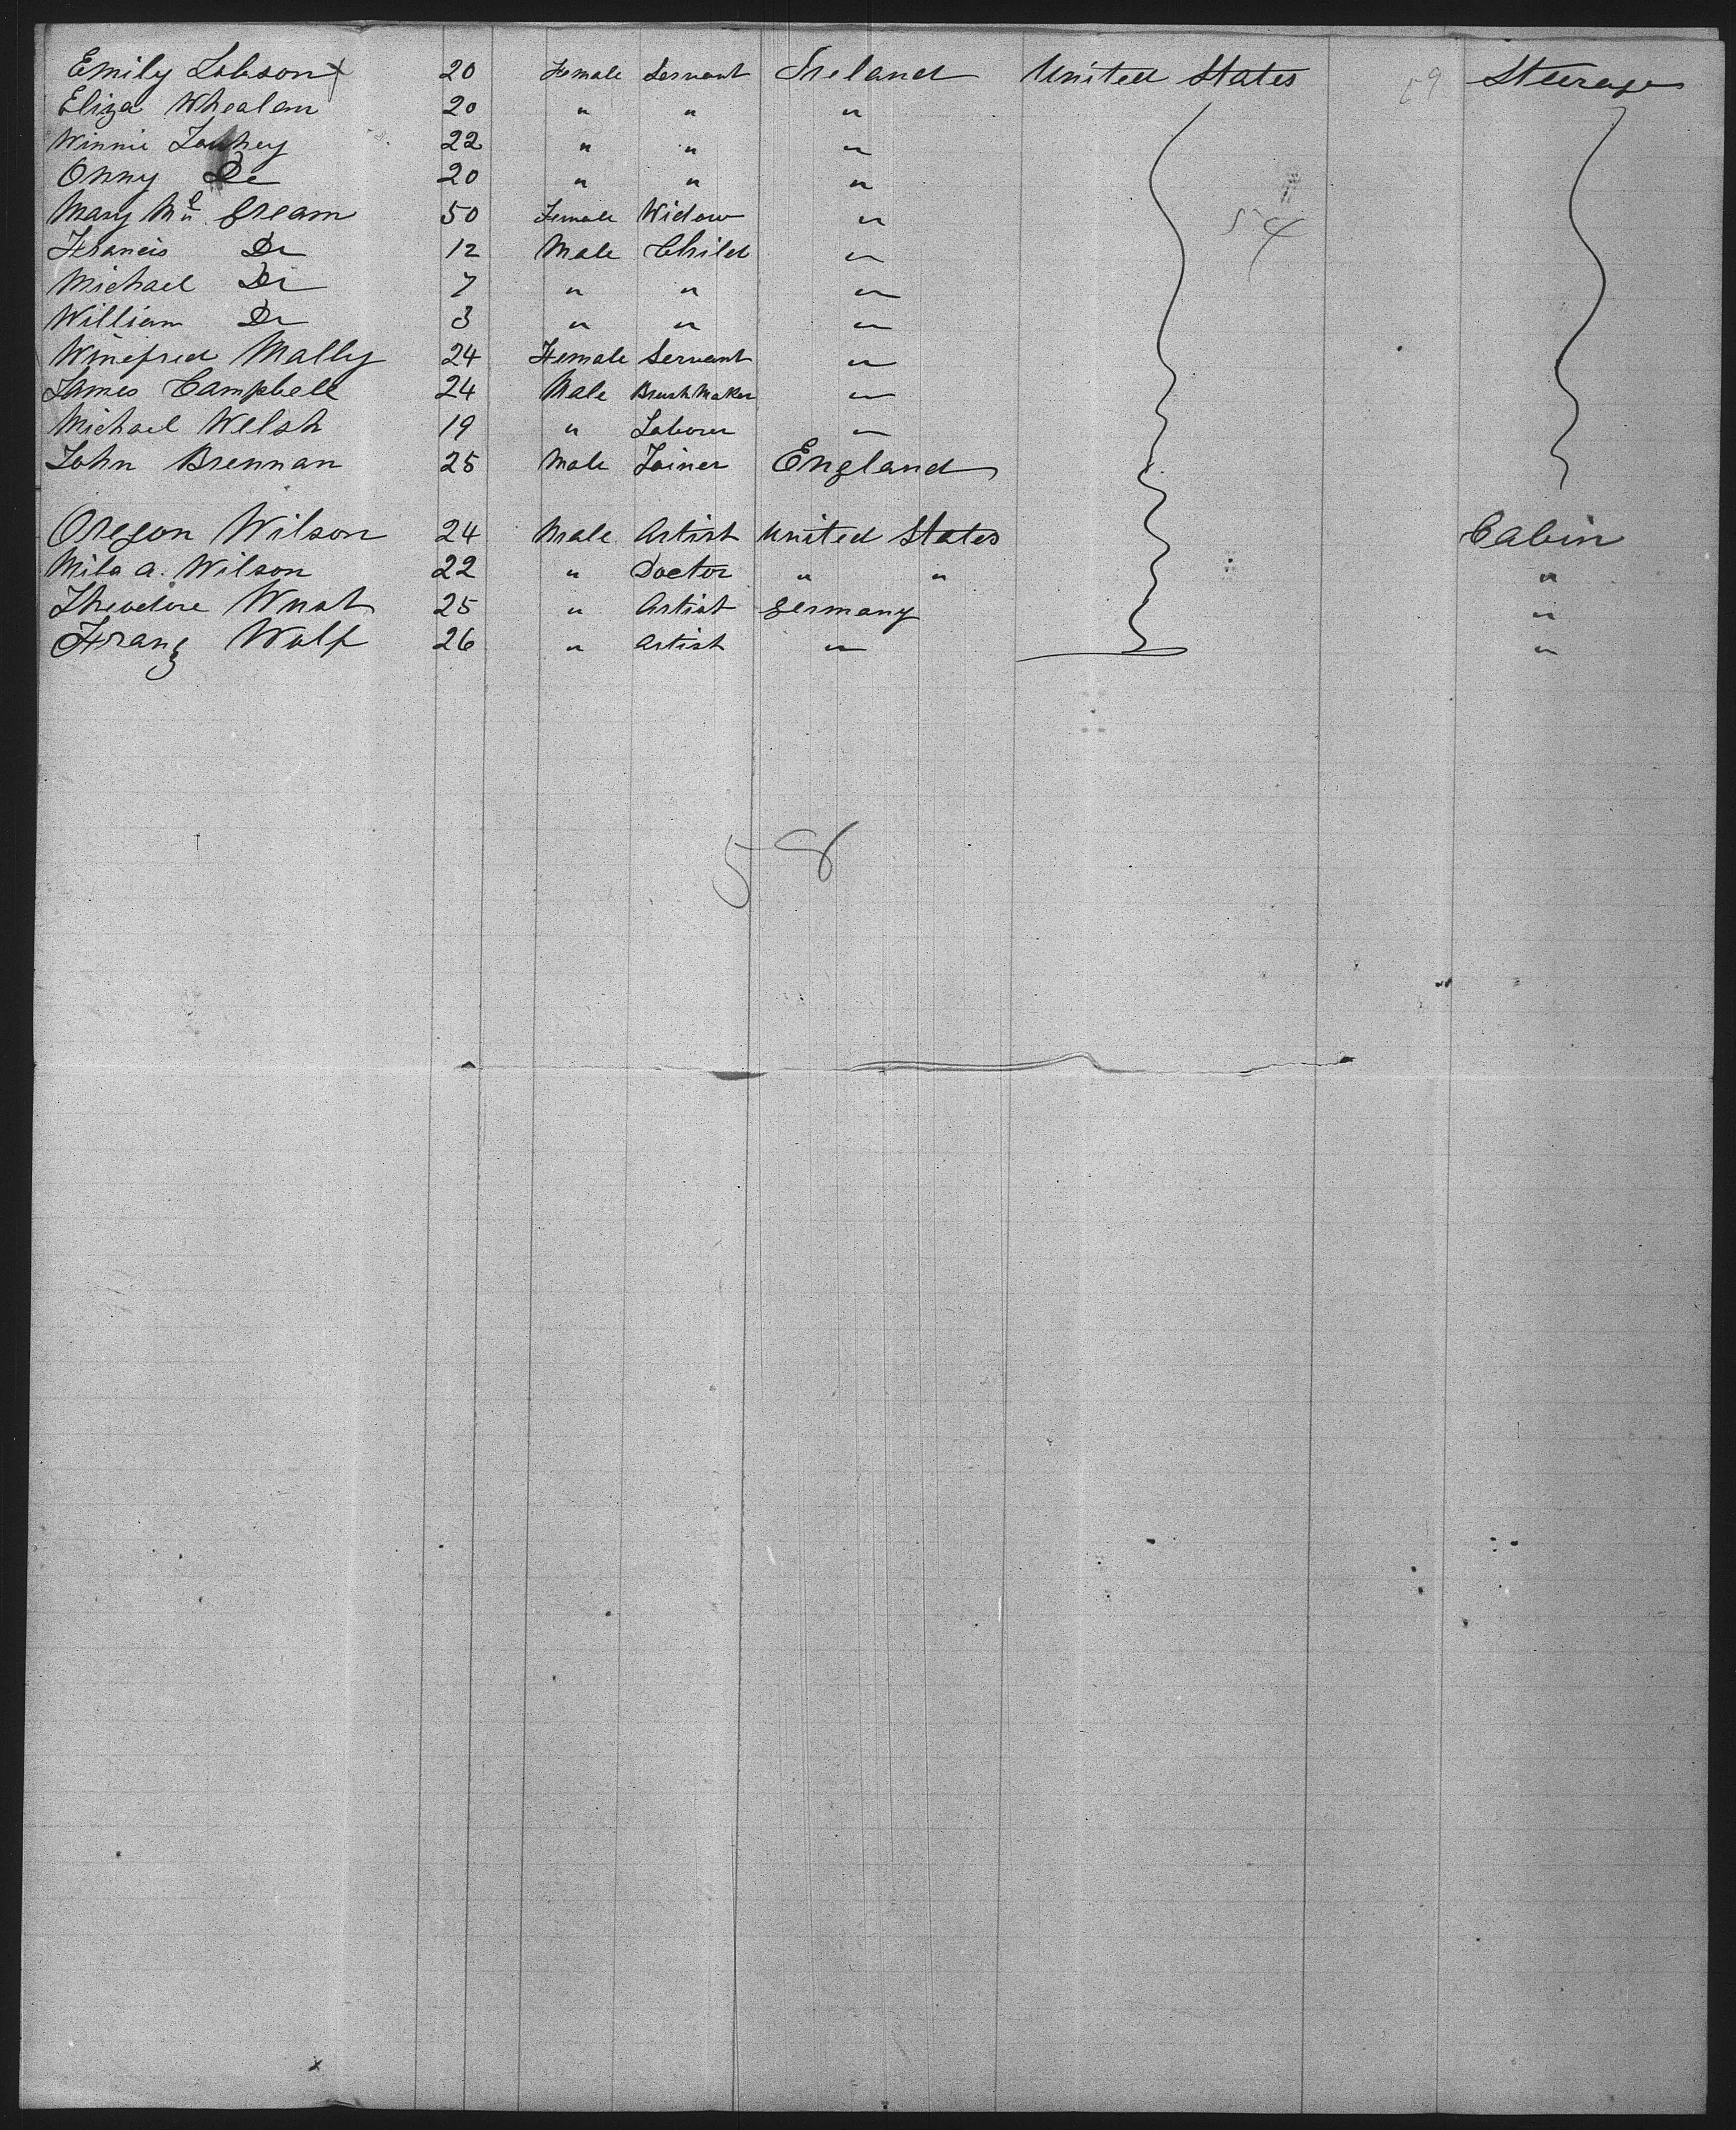 Emily Lobson x 20 Female Servant Ireland United States 59 Steerage
Eliza Whealan 20 " " "
Winnie 22 " " "
Onny Do 20 " " "
Mary Mc Gream 50 Female Widow "
Francis Do 12 Male Child "
Michael Do 7 " " "
William Do 3 " " "
Winefred Mally 24 Female Servant "
James Campbell 24 Male Brush Maker "
Michael Welsh 19 " Laborer "
John Brennan 25 Male Joiner England
54
Oregon Wilson 24 Male Artist United States Cabin
Milo A. Wilson 22 " Doctor " " "
Theodore Wust 25 " Artist Germany "
Franz Wulf 26 " Artist " "
58
x